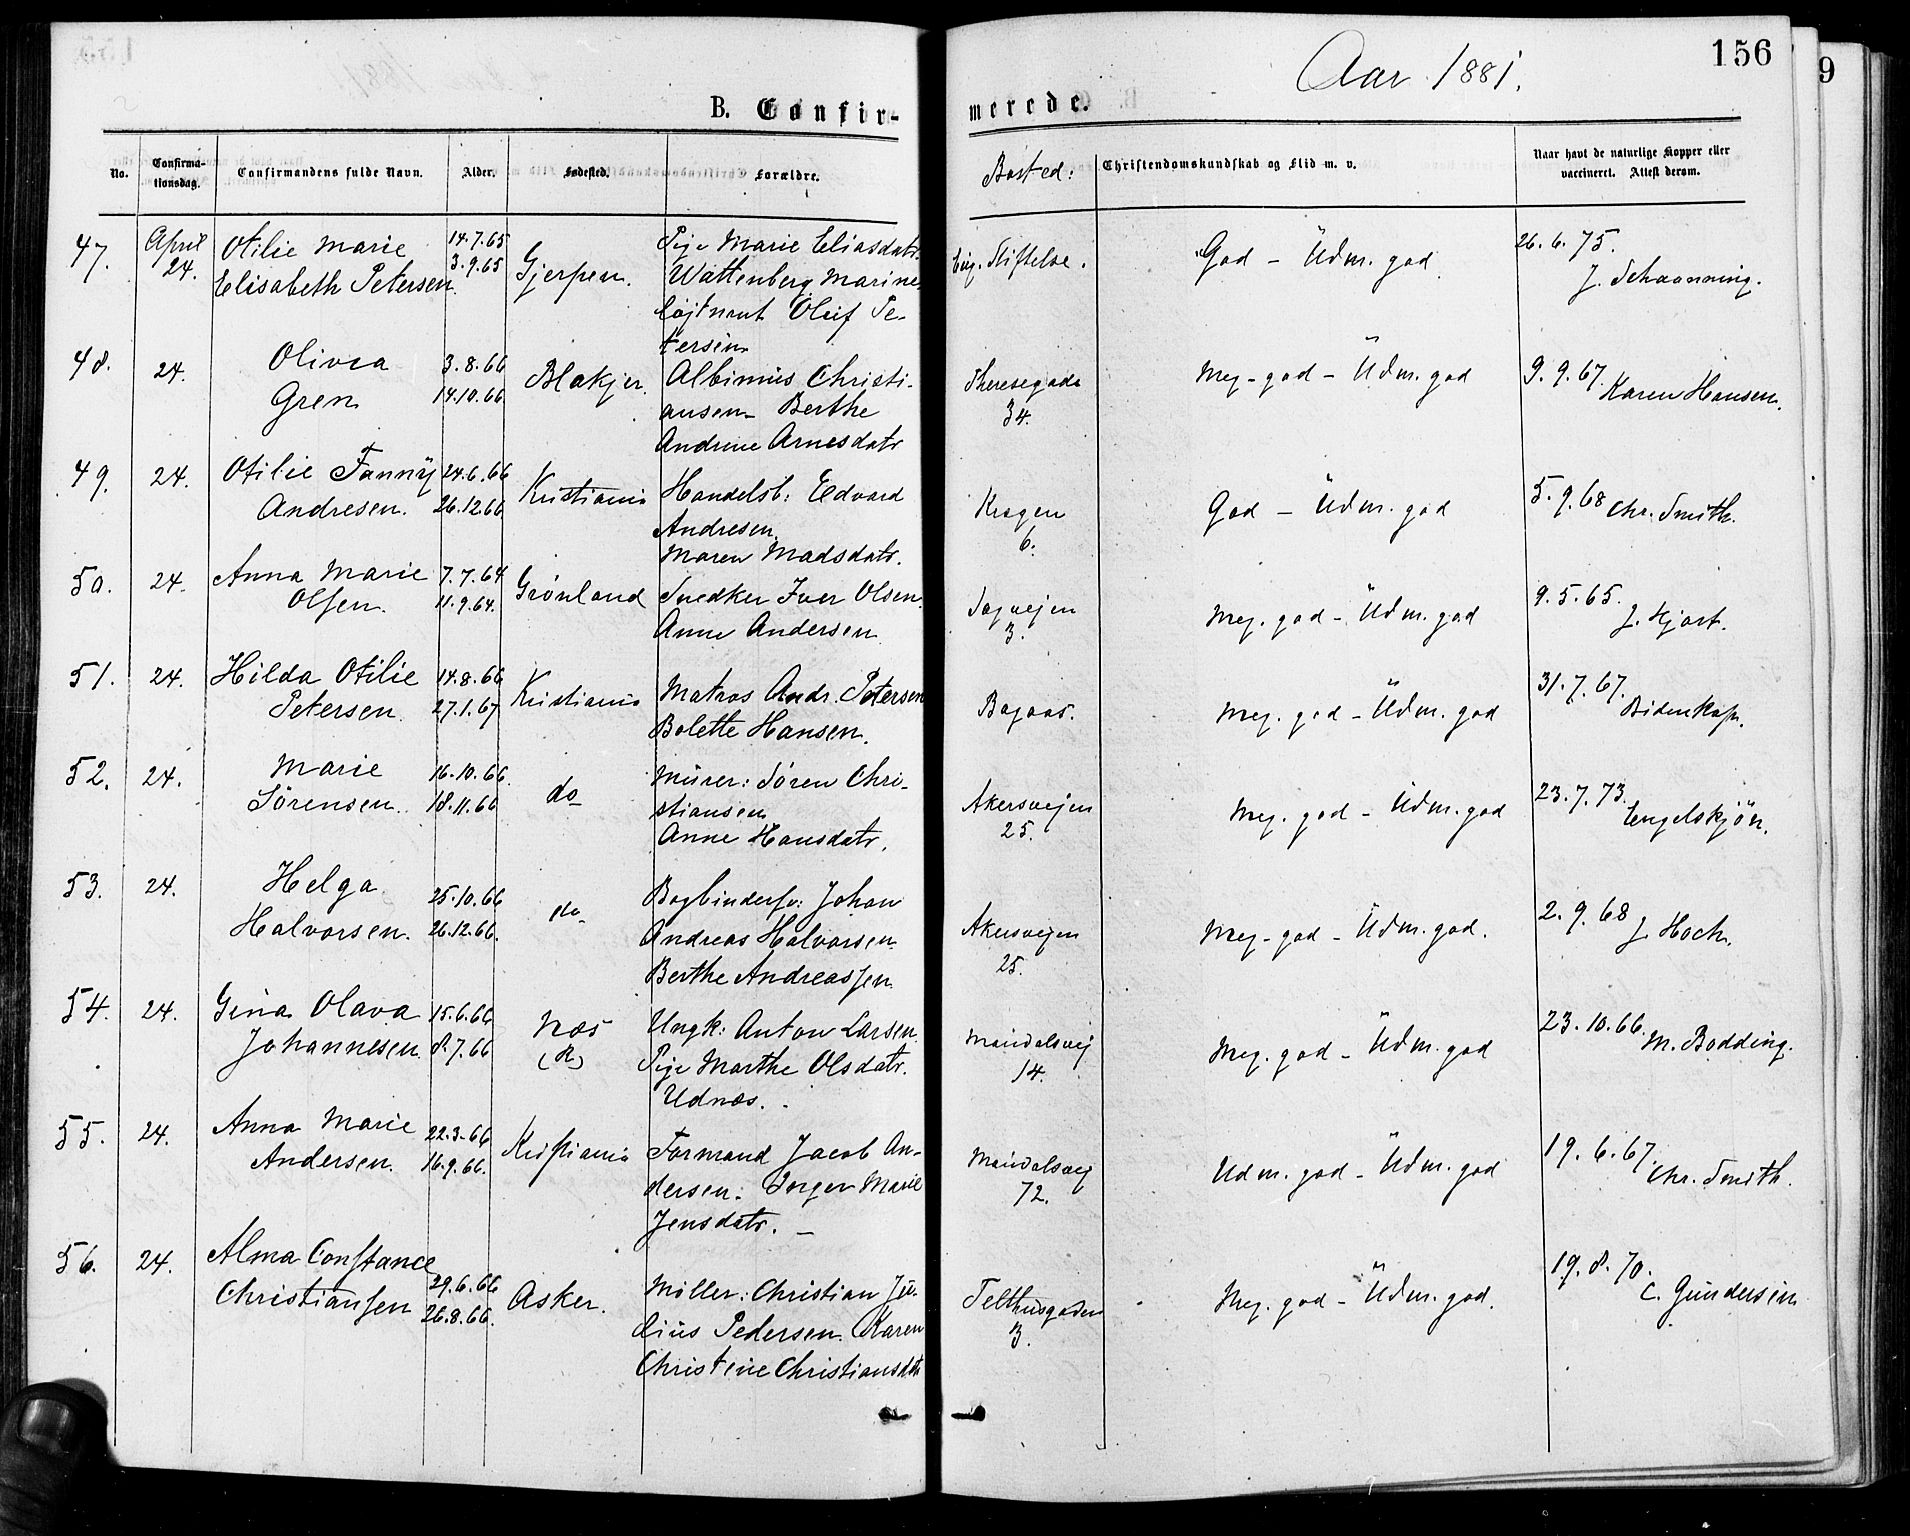 Aar 1881.
156
9
B. Confir-
merede.
No.
Confirma-
tionsdag.
Confirmandens fulde Navn.
Alder.
Fødested.
Forældre.
Bosted:
Christendomskundskab og Flid m. v.
Naar havt de naturlige Kopper eller
vaccineret. Attest derom.
47. April 24. Otilie Marie 14.7.65 Gjerpen. Pige Marie Eliasdatr.
Elisabeth Petersen 3.9.65 Wattenberg Marine
løjtnant Oluf Pe-
tersen
Eug. Stiftelse. God - Udm. god 26.6.75.
J. Schaanning.
48. 24. Olivia 3.8.66 Blakjer. Albinus Christi-
Gren 14.10.66 ansen - Berthe
Andrine Arnesdatr
Theresegade Meg. god - Udm. god 9.9.67. Karen Hansen.
34.
49. 24. Otilie Fanny 24.6.66 Kristiania Handelsb: Edvard
Andresen. 26.12.66 Andresen
Maren Madsdatr.
Krogen God - Udm. god 5.9.68 Chr. Smith.
6.
50. 24. Anna Marie 7.7.64 Grønland Snedker Iver Olsen
Olsen. 11.9.64. Anne Andersen
Sagvejen Meg. god - Udm. god 9.5.65.
3. J. Hjort.
51. 24. Hilda Otilie 14.8.66 Kristiania Matros Andr. Petersen
Petersen 27.1.67 Bolette Hansen.
Bagaas. Meg. god - Udm. god 31.7.67.
Bidenkap.
52. 24. Marie 16.10.66 do Murer: Søren Chri-
Sörensen. 18.11.66 stiansen
Anne Hansdatr.
Akersvejen Meg. god - Udm. god 23.7.73.
25. Engelskjön.
53. 24. Helga 25.10.66 do Bogbindersv: Johan
Halvorsen. 26.12.66. Andreas Halvorsen
Berthe Andreassen
Akersvejen Meg. god - Udm. god. 2.9.68
25. J. Hoch.
54. 24. Gina Olava 15.6.66 Næs Ungk: Anton Larsen
Johannesen 8.7.66 (R) Pige Marthe Olsdatr.
Udnæs.
Maridalsvej Meg. god - Udm. god 23.10.66.
14. M. Bodding.
55. 24. Anna Marie 22.3.66 Kristiania Formand Jacob An-
Andersen. 16.9.66. dersen. Inger Marie
Jensdatr.
Maridalsvej Udm. god - Udm. god 19.6.67
72. Chr. Smith.
56. 24. Alma Constance 29.6.66 Asker. Møller: Christian Ju-
Christiansen 26.8.66. lius Pedersen Karen
Christine Christiansdatr
Telthusgaden Meg. god - Udm. god. 19.8.70.
3. C. Gundersen